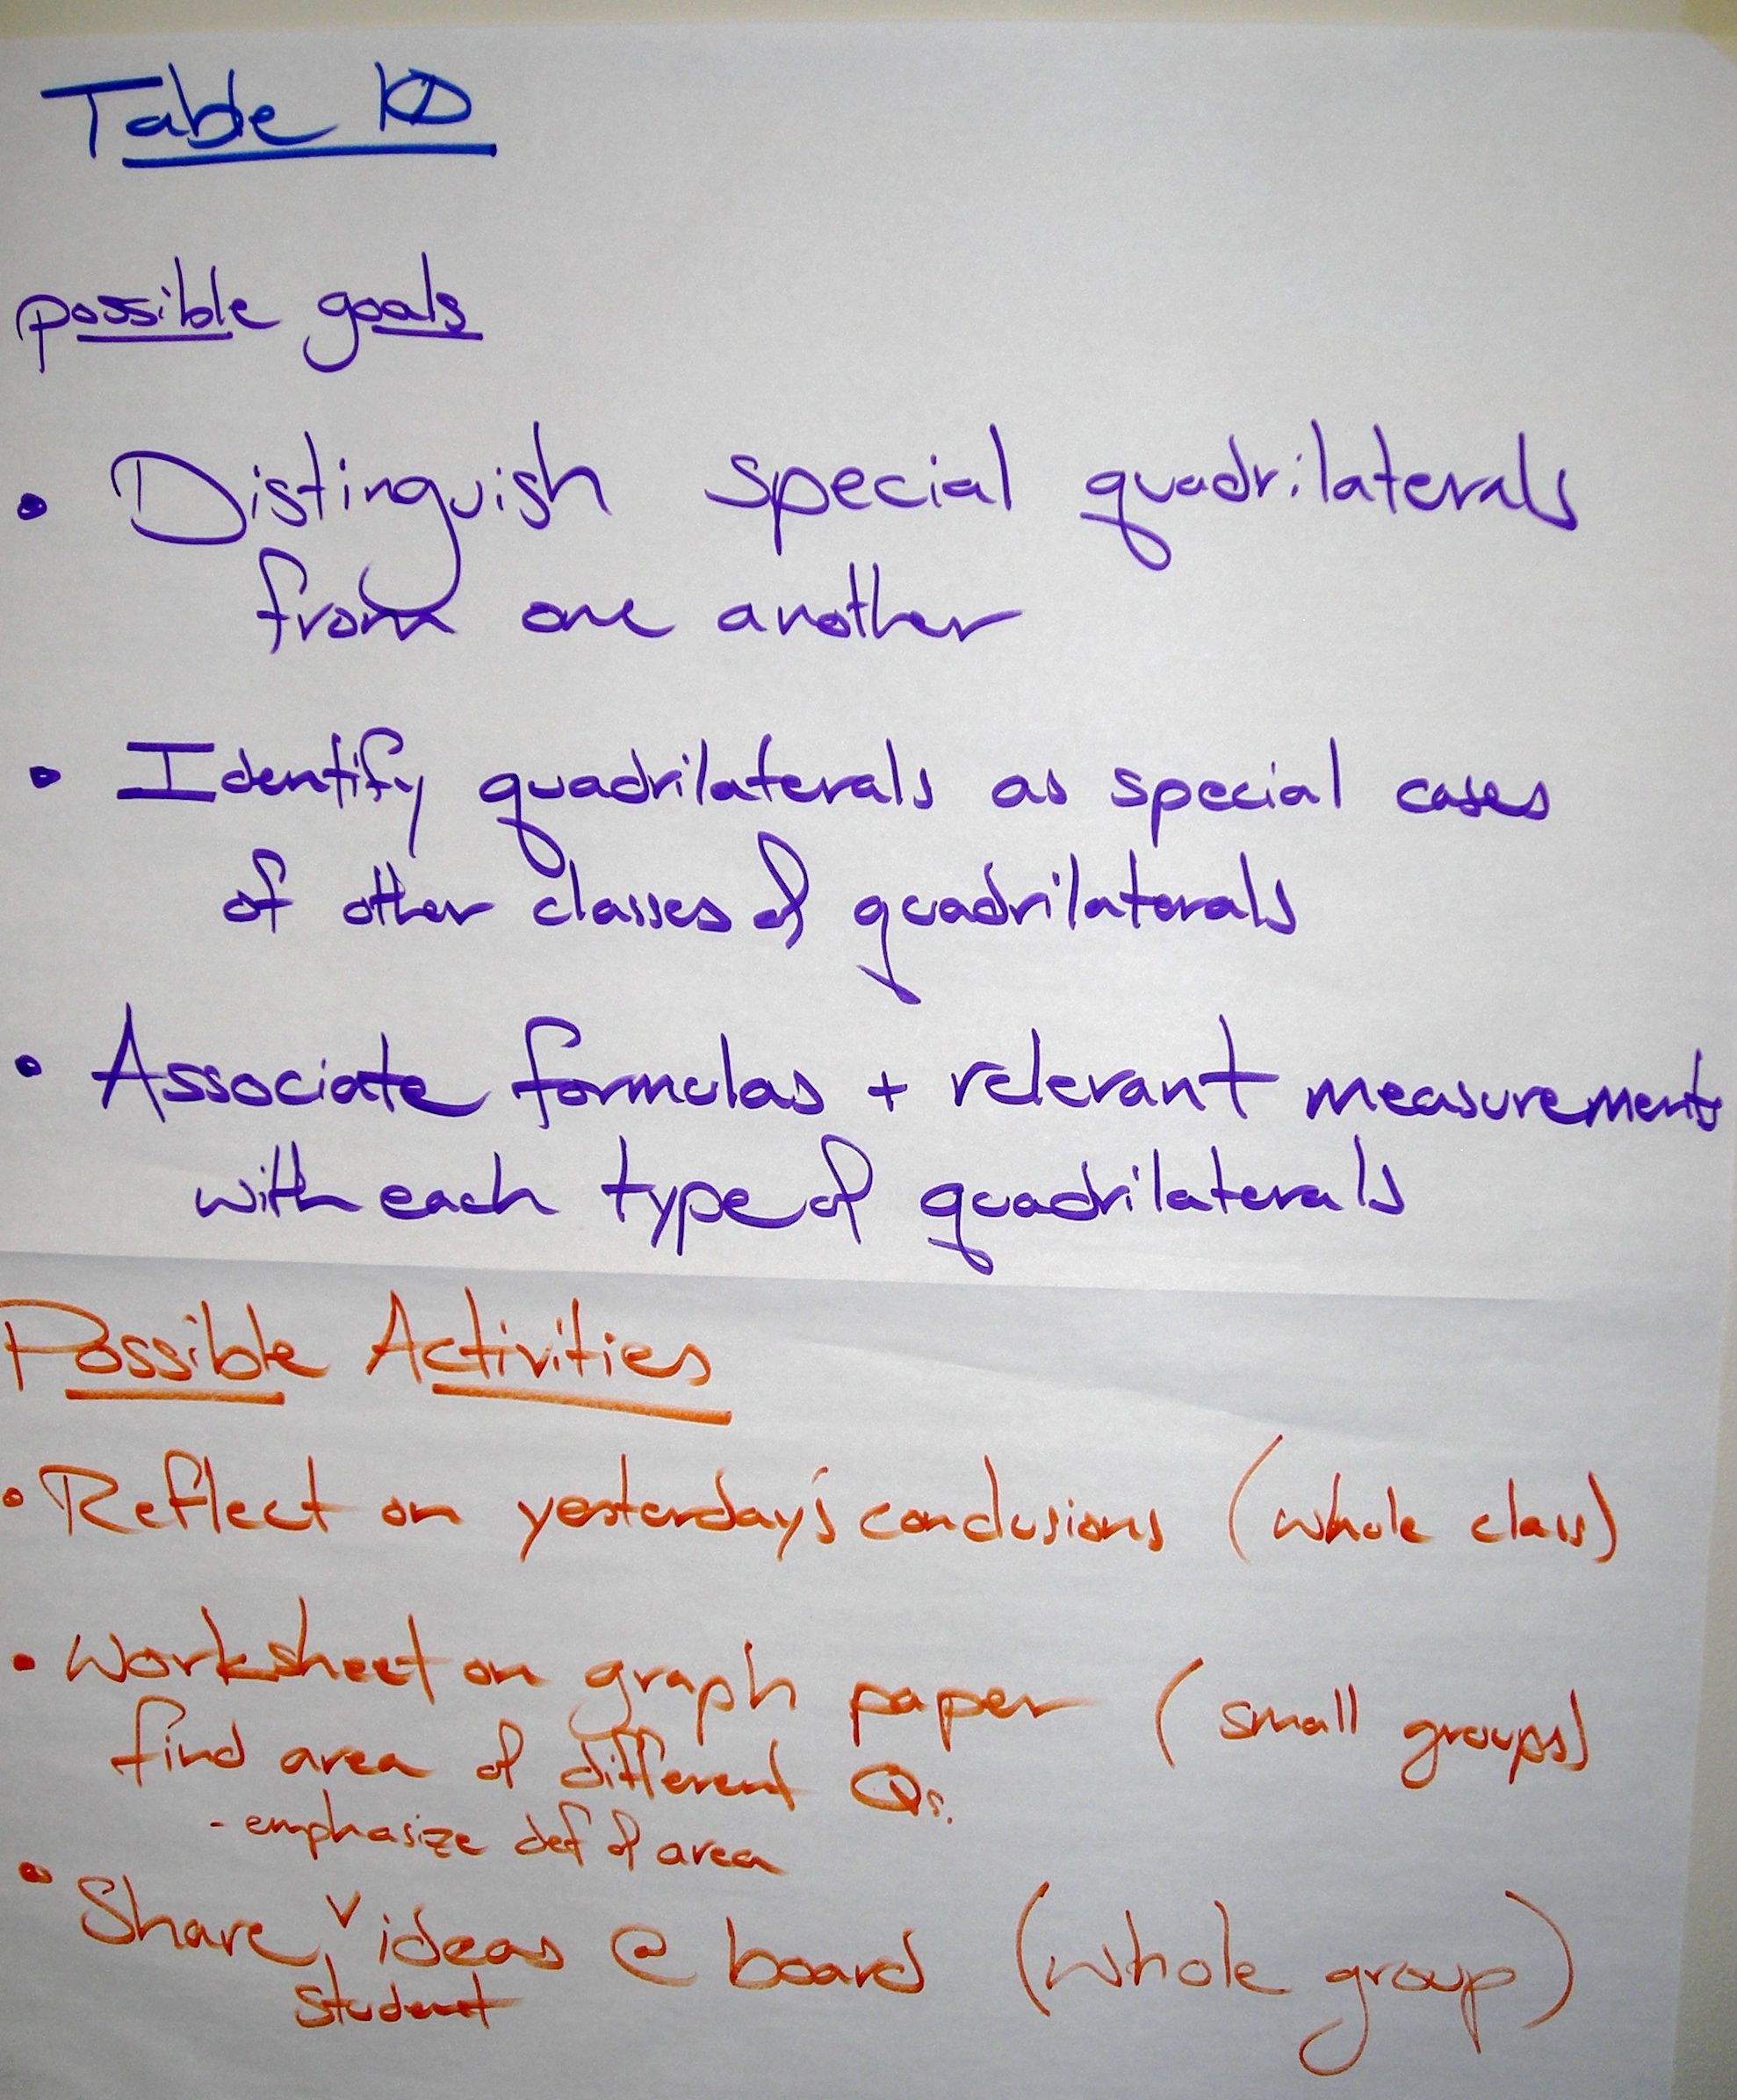 Table 10
possible goals
• Distinguish special quadrilaterals
from one another
• Identify quadrilaterals as special cases
of other classes of quadrilaterals
• Associate formulas + relevant measurements
with each type of quadrilaterals
Possible Activities
• Reflect on yesterday's conclusions (whole class)
• Worksheet on graph paper (small groups)
find area of different Qs.
- emphasize def of area
• Share ideas @ board (whole group)
student